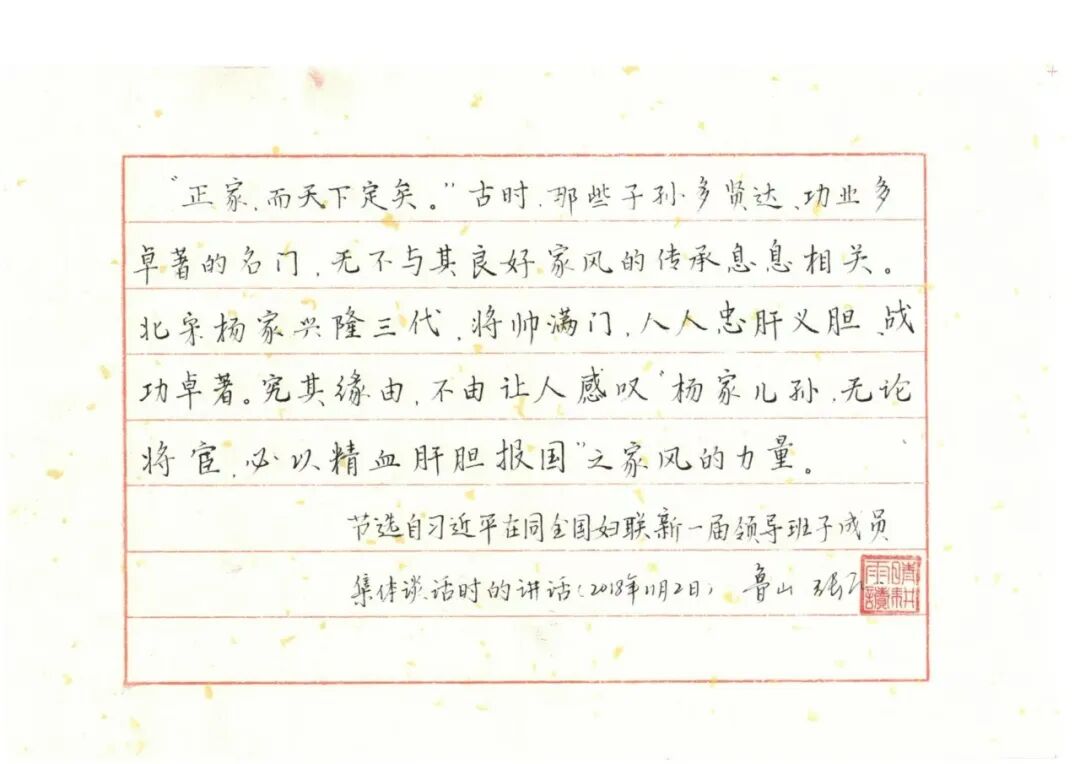 “正家，而天下定矣。”古时，那些子孙多贤达、功业多
卓著的名门，无不与其良好家风的传承息息相关。
北宋杨家兴隆三代，将帅满门，人人忠肝义胆、战
功卓著。究其缘由，不由让人感叹“杨家儿孙，无论
将宦，必以精血肝胆报国”之家风的力量。
节选自习近平在同全国妇联新一届领导班子成员
集体谈话时的讲话（2018年11月2日） 鲁山 张
晴耕雨读